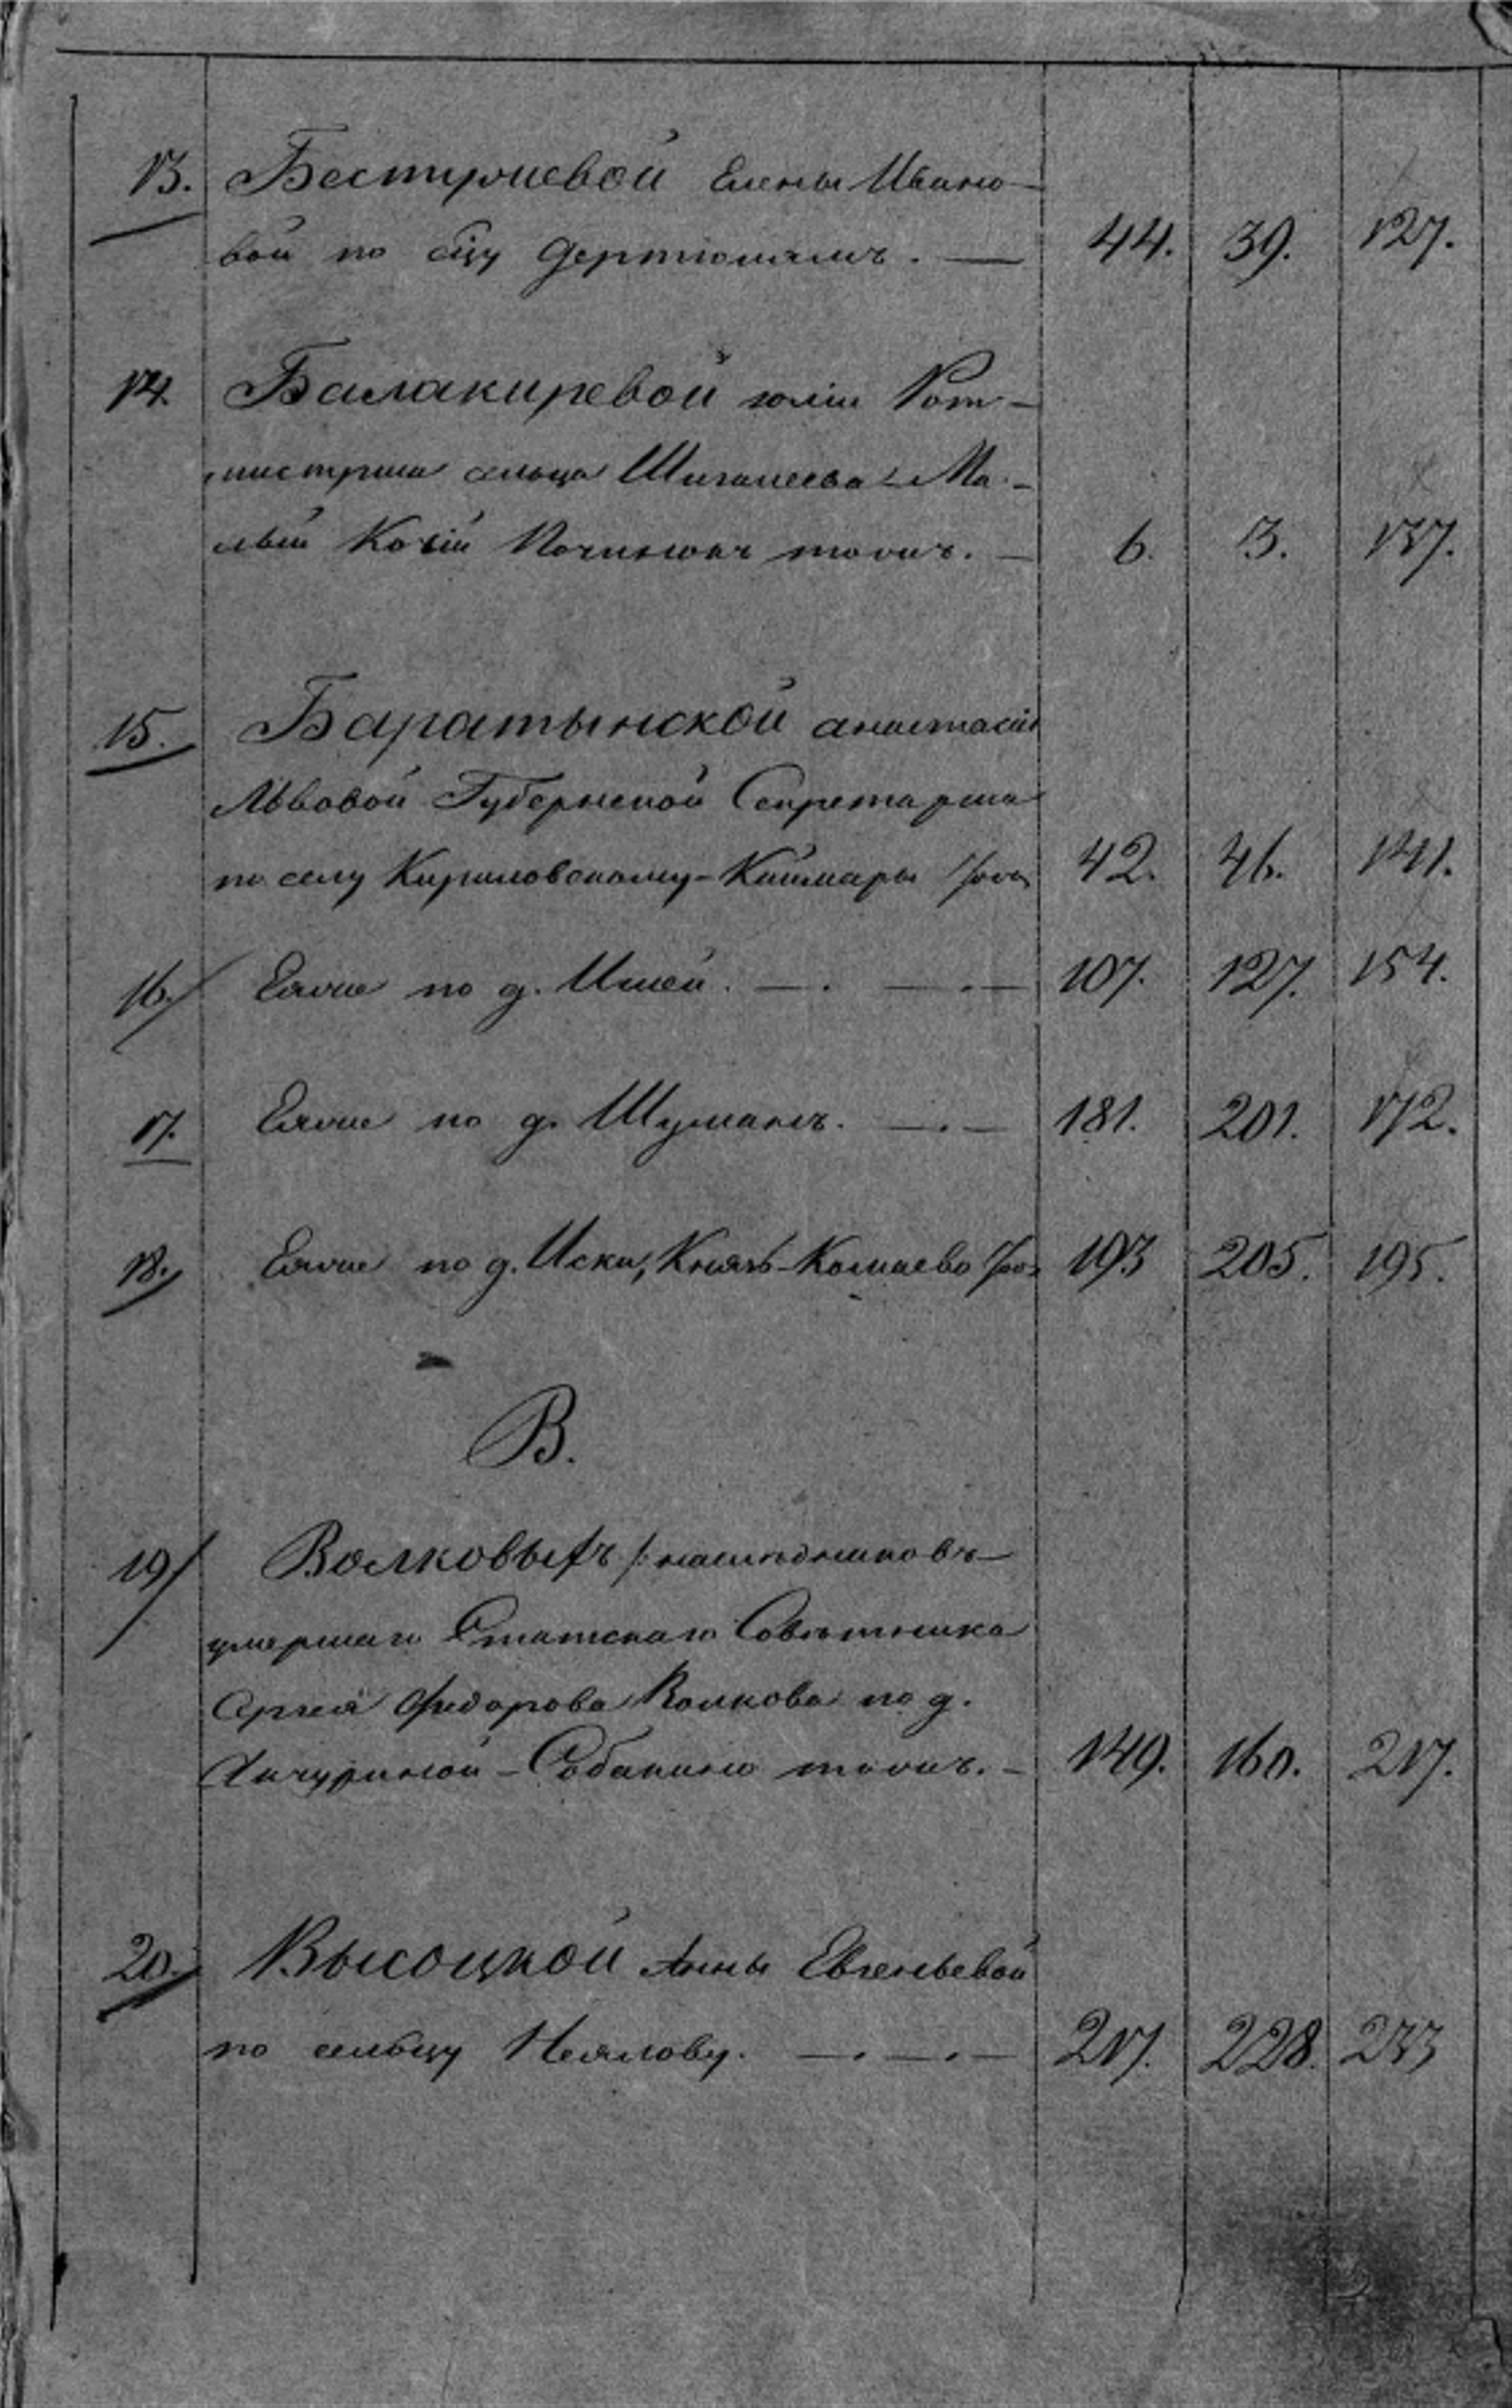 13. Бестужевой Елены Ивано-
вой по сцу Дертюлямъ. — 44. 39. 127.
14. Балакиревой Юліи Рот-
мистрши сельца Шигалеева - Ма-
лый Кочій Починокъ тожъ. — 6. 3. 137.
15. Баратынской Анастасіи
Львовой Губернской Секретарши
по селу Кириловскому-Каймары тожъ 42. 46. 141.
16. Еяже по д. Ишей. — . — . — 107. 127. 154.
17. Еяже по д. Шуманъ. — . — 181. 201. 172.
18. Еяже по д. Иски, Князь-Камаево тожъ 193 205. 195.
В.
19 Волковыхъ /: наслѣдниковъ
умершаго Статскаго Совѣтника
Сергея Федорова Волкова по д.
- Собакино тожъ. — 149. 160. 217.
20. Высоцкой Анны Евгеньевой
по сельцу Неялову. — . — . — 217. 228. 233